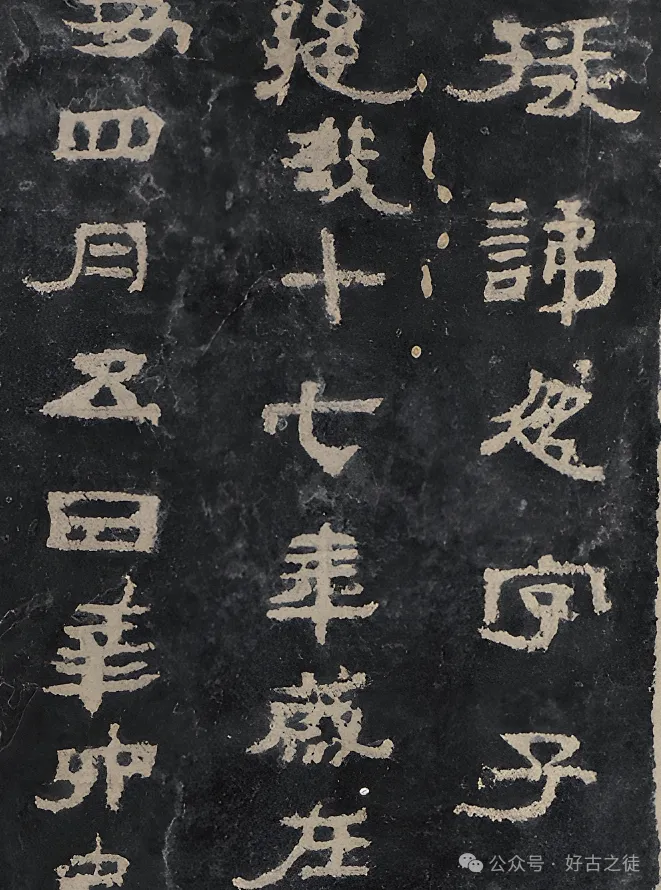 掾諱忽字子
建武十七年歲在
丑四月五日辛卯
公众号·好古之徒